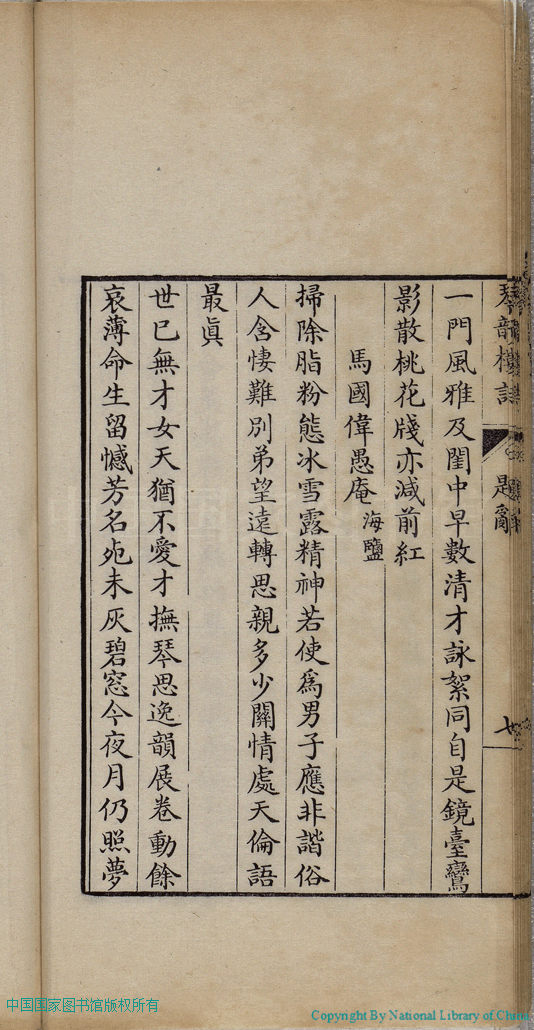 一門風雅及閨中早數清才詠絮同自是鏡臺鸞
影散桃花牋亦減前紅
馬國偉愚庵海鹽
掃除脂粉態冰雪露精神若使爲男子應非諧俗
人含悽難別弟望遠轉思親多少關情處天倫語
最眞
世已無才女天猶不愛才撫琴思逸韻展卷動餘
哀薄命生留憾芳名死未灰碧窓今夜月仍照夢
中国国家图书馆版权所有
Copyright By National Library of China